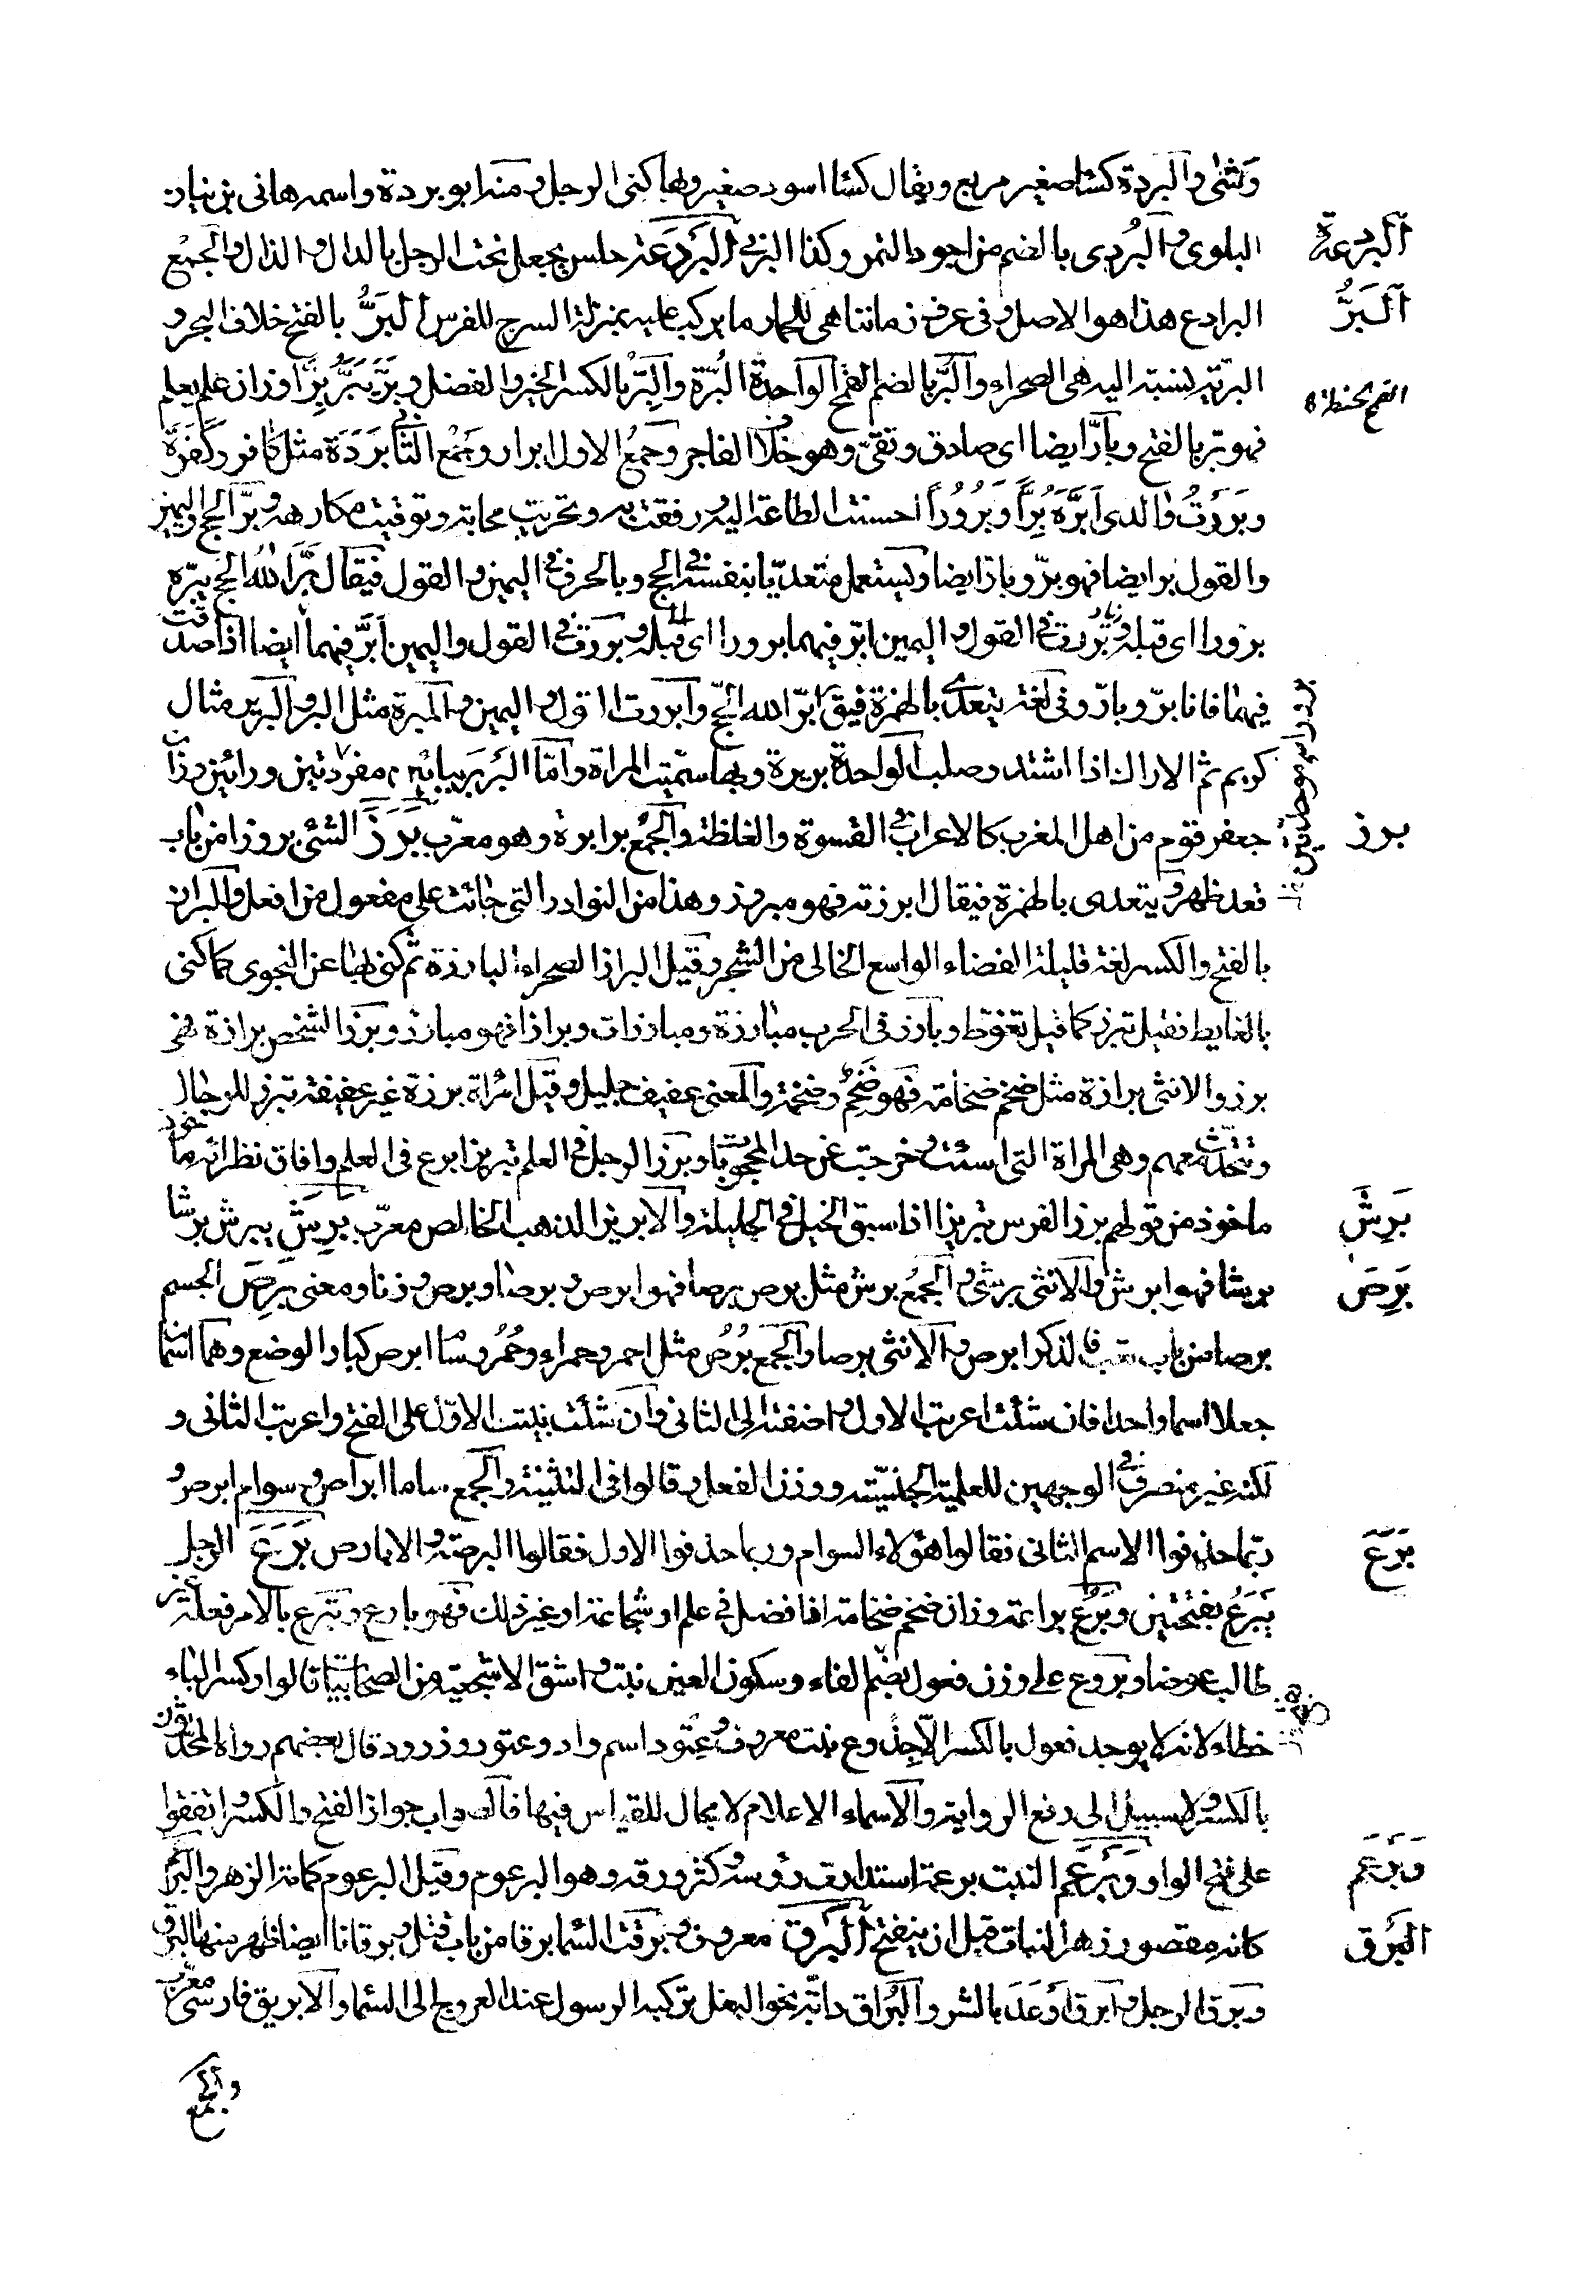 وتثنى والبردة كساء صغير مربع ويقال كساء اسود صغير وبها كنى الرجل ومنه ابو بردة واسمه هانى بن نيار
البردعة
البلوى والبُردى بالضم من اجود التمر وكذا البرنى البَردَعة حلس يجعل تحت الرحل بالدال والذال والجمع
اَلبَرُّ
البرادع هذا هو الاصل وفى عرف زماننا هى للحمار ما يركب عليه بمنزلة السرج للفرس البَرُّ بالفتح خلاف البحر و
البرية نسبة اليه هى الصحراء والبُرّ بالضم القمح الواحدة البُرّة والبِرّ بالكسر الخير والفضل وبرّ يبَرُّ بِرًّا وزان علم يعلم
القمح الحنطة
فهو برّ بالفتح وبارّ ايضا اى صادق وتقىّ وهو خلاف الفاجر وجمع الاول ابرار وجمع الثانى بَرَرَة مثل كافر وكفرة
وبَرَرتُ والدى اَبَرُّهُ بِرًّا وبُرُورًا احسنت الطاعة اليه ورفقت به وتحريت محابه وتوقيت مكارهه وبرّ الحج واليمين
والقول برا ايضا فهو برّ وبارّ ايضا ويستعمل متعديا بنفسه فى الحج وبالحرف فى اليمين والقول فيقال برّ الله الحج يبرّه
برورا اى قبله وبررت فى القول واليمين ابر فيهما برورا اى قبله وبررت فى القول واليمين اَبَرُّ فيهما ايضا اذا صدقت
فيهما فانا برّ وبارّ وفى لغة يتعدى بالهمزة فيقال ابرّ الله الحجّ وابررت القول واليمين والمبرة مثل البر والبرير مثال
كريم ثمر الاراك اذا اشتد وصلب الواحدة بريرة وبها سميت المراة واما البربر ببائين مفردتين ورائين وزان
برز
جعفر قوم من اهل المغرب كالاعراب فى القسوة والغلظة والجمع برابرة وهو معرّب بَرَزَ الشئ بروزا من باب
قعد ظهر ويتعدى بالهمزة فيقال ابرزته فهو مبروز وهذا من النوادر التى جائت على مفعول من افعل والبراز
بالفتح والكسر لغة قليلة الفضاء الواسع الخالى من الشجر وقيل البراز الصحراء البارزة ثم كنى بها عن النجوى كما كنى
بالغايط فقيل تبرز كما قيل تغوط وبارز فى الحرب مبارزة ومبارزات وبرازا فهو مبارز وبرز الشخص برازة فهو
برز والانثى برازة مثل ضخم ضخامة فهو ضَخْمٌ وضخمة والمعنى عفيف جليل وقيل امراة برزة غير عفيفة تبرز للرجال
وتتحدّث معهم وهى المراة التى اسنت وخرجت عن حد المحجوبات وبرز الرجل فى العلم تبريزا برع فى العلم وافاق نظرائه ماخوذ
بَرِشَ
ماخوذ من قولهم برز الفرس تبريزا اذا سبق الخيل فى الحلبة والابريز الذهب الخالص معرّب بَرِشَ يبرش برشا
بَرِصَ
برشا فهو ابرش والانثى برشاء والجمع برش مثل برص برصا فهو ابرص وبرصاء وبرص وزنا ومعنى بَرِصَ الجسم
برصا من باب تعب فالذكر ابرص والانثى برصاء والجمع بُرْص مثل احمر وحمراء وحُمُر وسام ابرص كبار الوضع وهما اسمان
جعلا اسما واحدا فان شئت اعربت الاول واضفته الى الثانى وان شئت بنيت الاوّل على الفتح واعربت الثانى و
لكنه غير منصرف فى الوجهين للعلمية الجنسيّة ووزن الفعل وقالوا فى التثنية والجمع ساما ابرص وسوام ابرص و
بَرَعَ
ربما حذفوا الاسم الثانى فقالوا هؤلاء السوام وربما حذفوا الاول فقالوا البرصة والابارص بَرَعَ الرجل
يبرَعُ بفتحتين وبَرُعَ براعة وزان ضخم ضخامة اذا فضل فى علم او شجاعة او غير ذلك فهو بارع وتبرع بالامر فعله غير
طالب عوضا وبروع على وزن فعول بضم الفاء وسكون العين بنت واشق الاشجعية من الصحابيات قالوا وكسر الباء
خطاء لانه لا يوجد فعول بالكسر الا خِروَع نبت معروف وعِتود اسم واد وعتور وذرود قال بعضهم رواه المحدّثون
بالكسر ولا سبيل الى دفع الرواية والاسماء الاعلام لا مجال للقياس فيها فالصواب جواز الفتح والكسر واتفقوا
وبَرعَمَ
على فتح الواو وبَرعَمَ النبت برعمة استدارت رؤسه وكثر ورقه وهو البرعوم وقيل البرعوم كمامة الزهر والبرعم
البَرق
كانه مقصور زهر النبات قبل ان ينفتح البَرق معروف وبرقت السماء برقا من باب قتل وبرقانا ايضا ظهر منها البرق
وبرق الرجل وابرق اَوعَدَ بالشر والبُراق دابّة نحو البغل تركبه الرسول عند العروج الى السماء والابريق فارسى معرب
والجمع